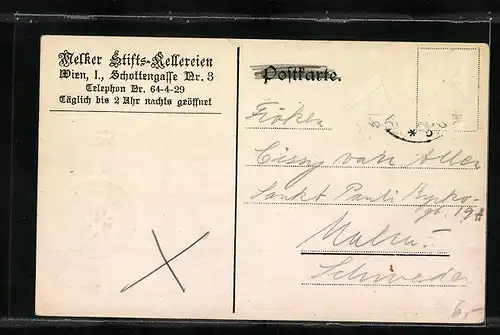 Melker Stifts-Kellereien
Wien, I., Schottengasse Nr. 3
Telephon Nr. 64-4-29
Täglich bis 2 Uhr nachts geöffnet
Postkarte.
Fröken
Cissy van Aller
Sankt Pauli Kyrko-
Malmö.
Schweden